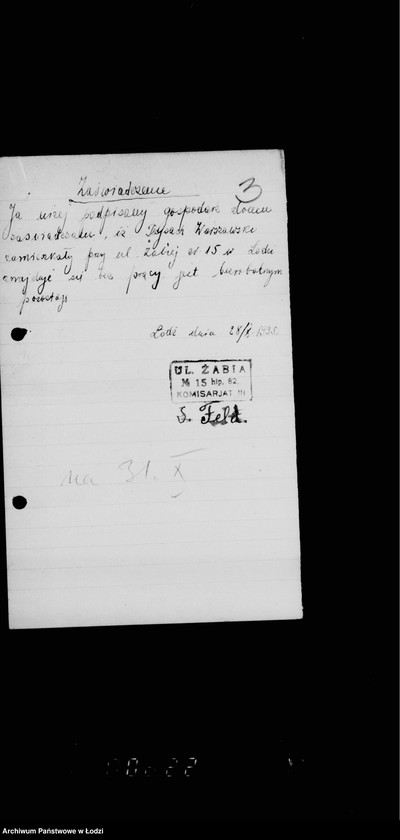 Zaświadczenie
3
Ja niżej podpisany gospodarz domu
zaświadczam, iż Warszawski
zamieszkały przy ul. Żabiej nr 15 w Łodzi
znajduje się bez pracy jest bezrobotnym
Łódź dnia 28/X
UL. ŻABIA
№ 15 hip. 82.
KOMISARJAT III
S. Feld.
na 31. X
Archiwum Państwowe w Łodzi